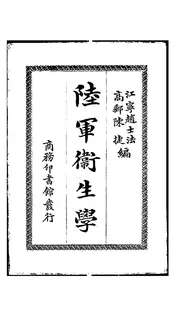 江寧趙士法
高郵陳捷編
陸軍衞生學
商務印書館發行